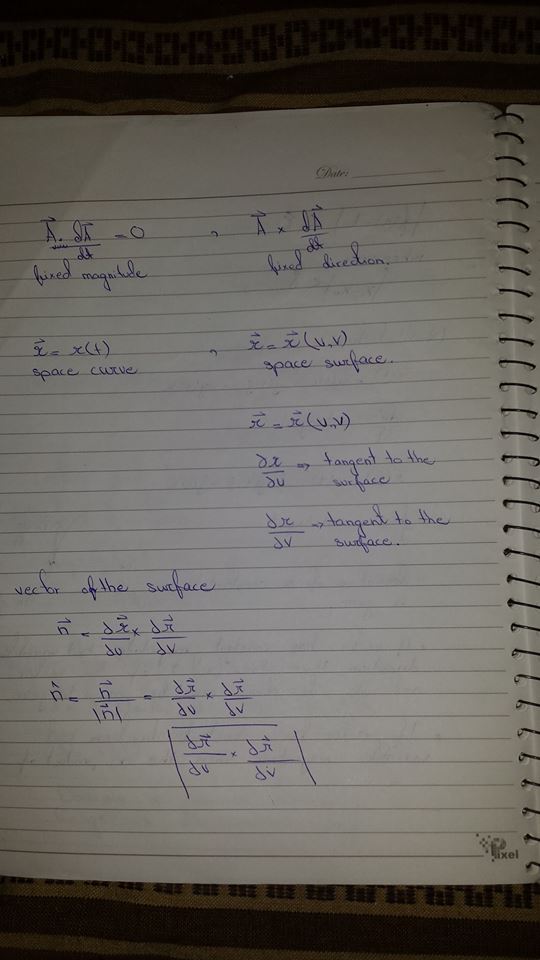 Date:
A⃗ · dA⃗/dt = 0 , A⃗ × dA⃗/dt
fixed magnitude fixed direction.
r⃗ = r(t) , r⃗ = r⃗(u,v)
space curve space surface.
r⃗ = r⃗(u,v)
∂r/∂u ⇒ tangent to the
surface
∂r/∂v ⇒ tangent to the
surface.
vector of the surface
n⃗ = ∂r⃗/∂u × ∂r⃗/∂v
n̂ = n⃗/|n⃗| = ∂r⃗/∂u × ∂r⃗/∂v
|∂r⃗/∂u × ∂r⃗/∂v|
Pixel